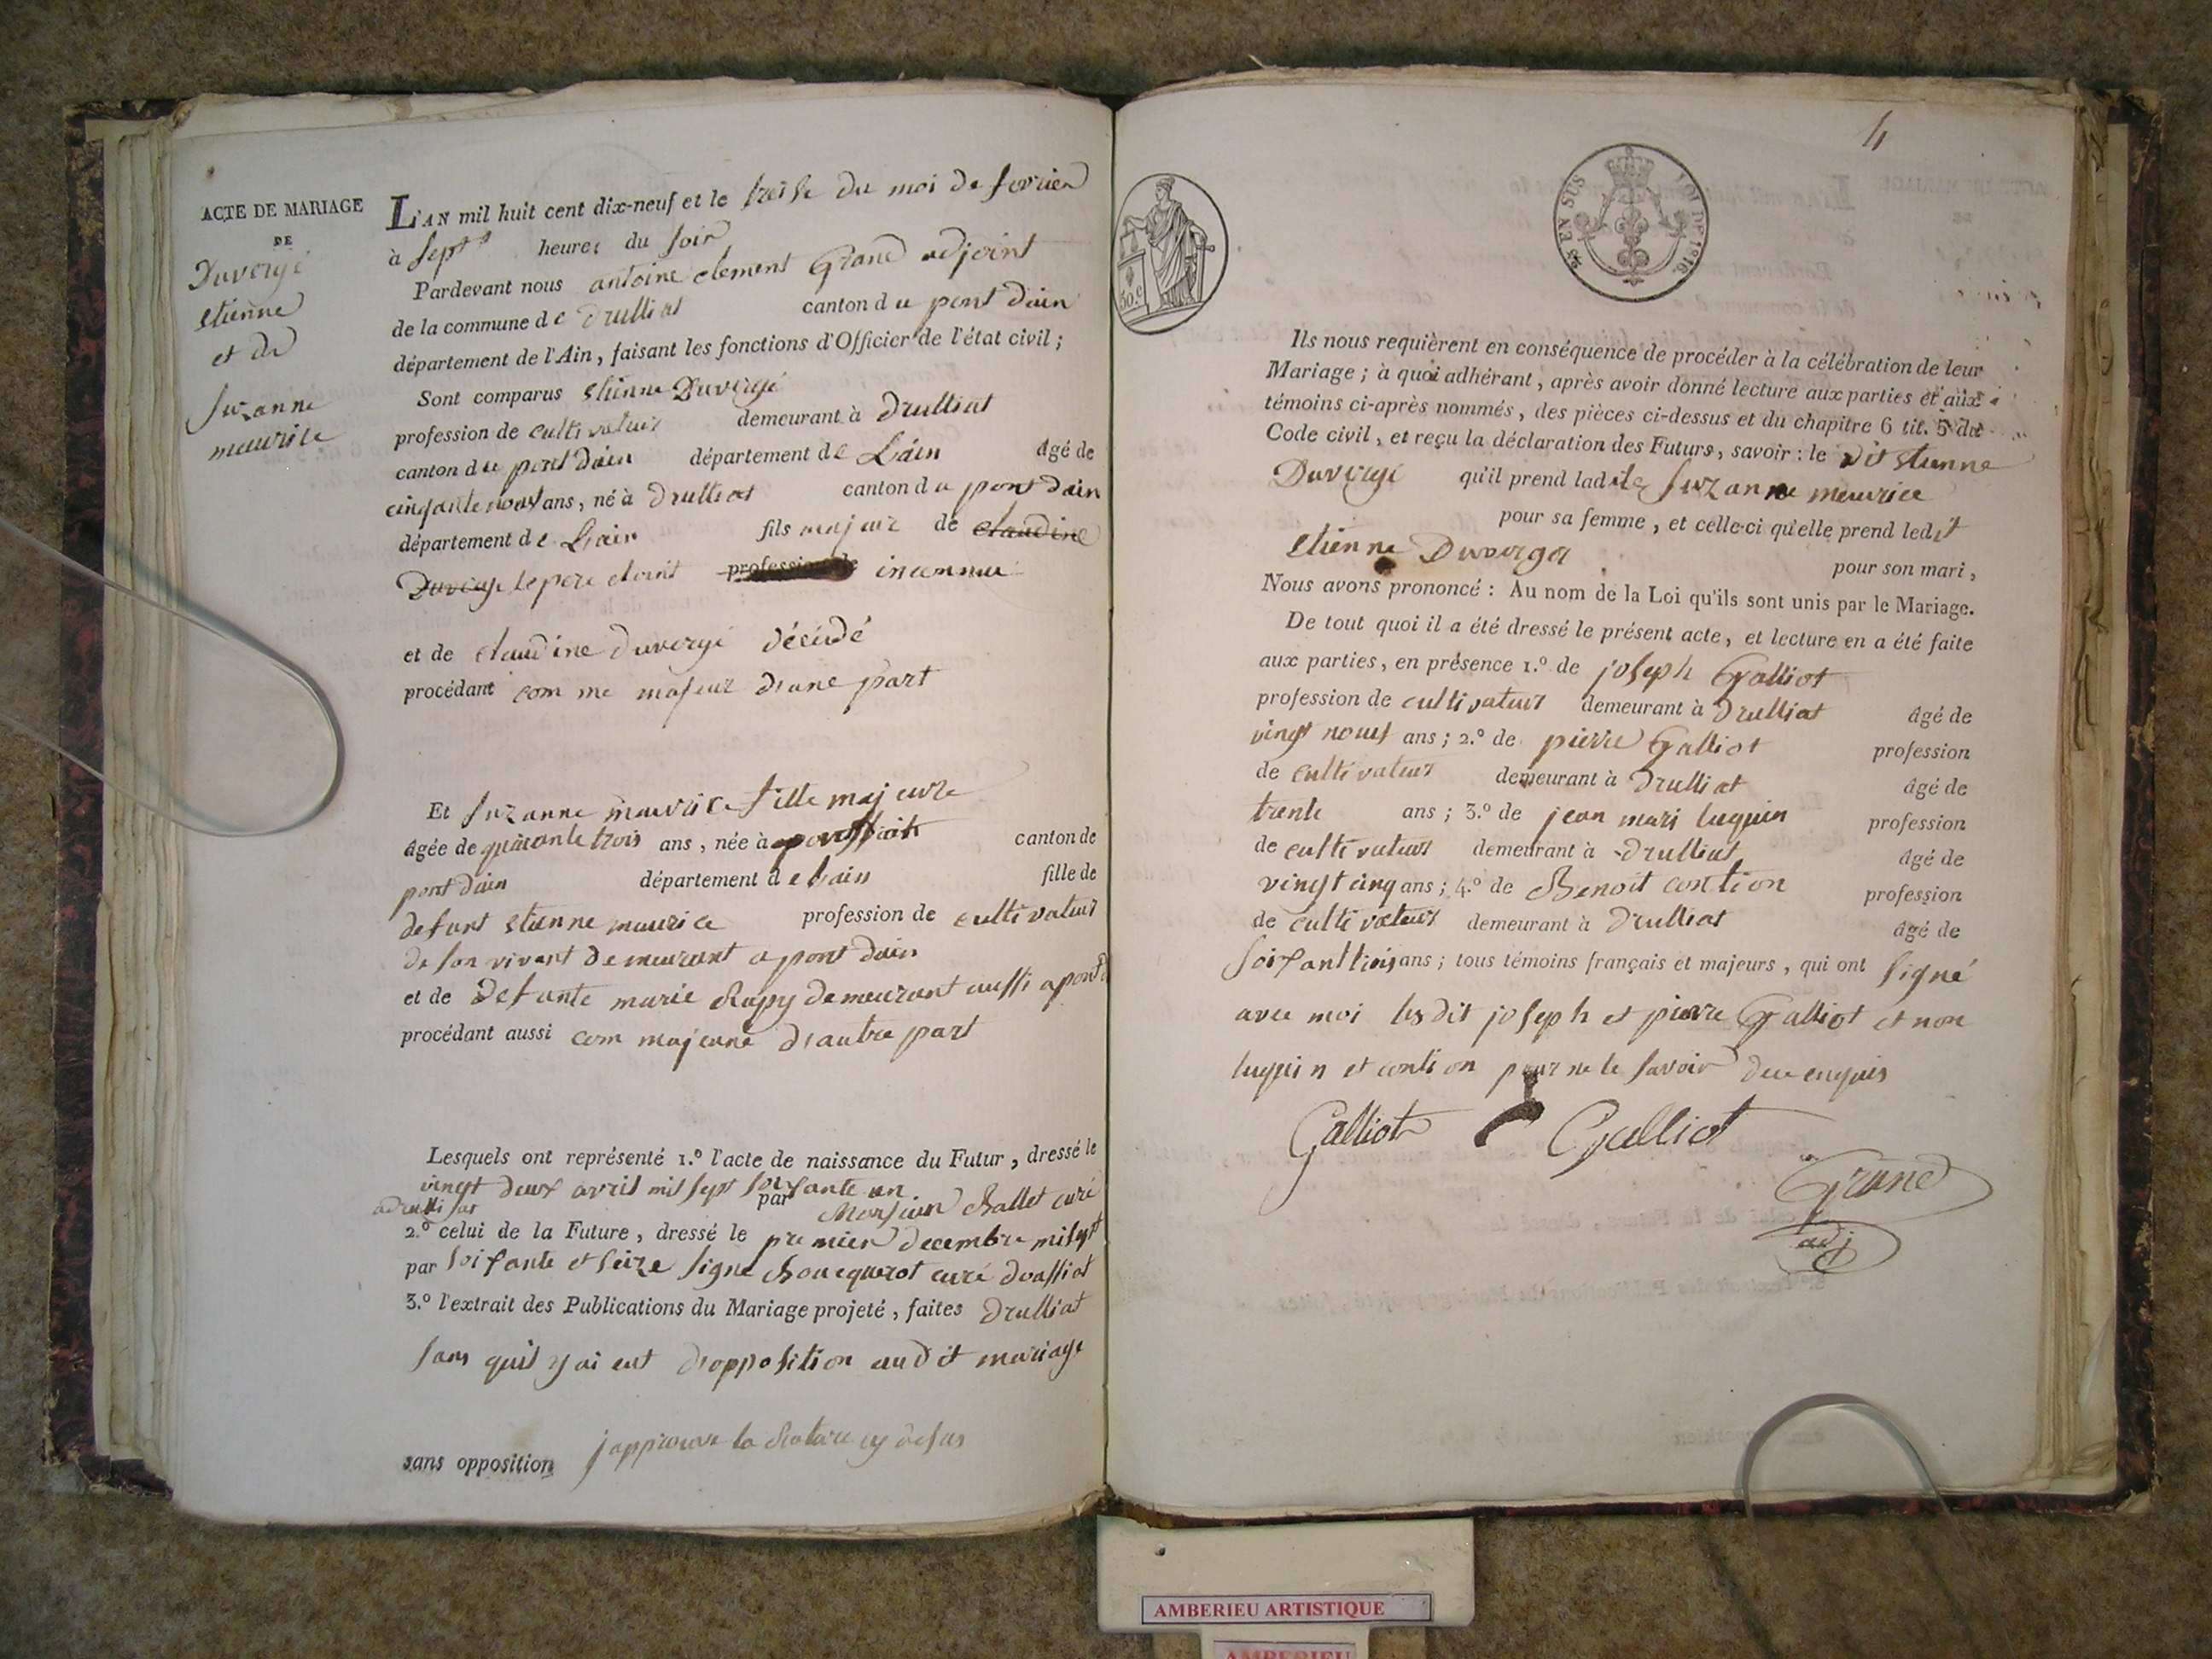 ACTE DE MARIAGE
DE
Duvergé
etienne
et de
Suzanne
meurice
L'AN mil huit cent dix-neuf et le treise du moi de fevrier
à sept heures du soir
Pardevant nous antoine clement Grand adjoint
de la commune de Drulliat canton du pont Dain
département de l'Ain, faisant les fonctions d'Officier de l'état civil;
Sont comparus etienne Duvergé
profession de cultivateur demeurant à Drulliat
canton du pont Dain département de Lain âgé de
cinquante neuf ans, né à Drulliat canton du pont Dain
département de Lain fils majeur de claudine
Duverge le pere etant profession de inconnue
et de claudine Duvergé décédé
procédant com me majeur d'une part
Et Suzanne maurice fille majeure
âgée de quarante trois ans, née à canton de
pont Dain département de Lain fille de
defunt etienne maurice profession de cultivateur
de son vivant demeurant a pont Dain
et de Defunte marie Rapy demeurant aussi a pont D
procédant aussi com majeure d'autre part
Lesquels ont représenté 1.º l'acte de naissance du Futur, dressé le
vingt deux avril mil sept soixante un
a drulliat par Monsieur Ballet curé
2.º celui de la Future, dressé le premier decembre mil sept
par soixante et seize signé curé
3.º l'extrait des Publications du Mariage projeté, faites Drulliat
sans quil y ai eut d'opposition audit mariage
sans opposition japprouve la rature cy desus
4
LOI DE 1816.
EN SUS
50 c
Ils nous requièrent en conséquence de procéder à la célébration de leur
Mariage; à quoi adhérant, après avoir donné lecture aux parties et aux
témoins ci-après nommés, des pièces ci-dessus et du chapitre 6 tit. 5 du
Code civil, et reçu la déclaration des Futurs, savoir: le dit etienne
Duvergé qu'il prend ladite Suzanne meurice
pour sa femme, et celle-ci qu'elle prend ledit
etienne Duverger pour son mari,
Nous avons prononcé: Au nom de la Loi qu'ils sont unis par le Mariage.
De tout quoi il a été dressé le présent acte, et lecture en a été faite
aux parties, en présence 1.º de joseph Galliot
profession de cultivateur demeurant à Drulliat âgé de
vingt neuf ans; 2.º de pierre Galliot profession
de cultivateur demeurant à Drulliat âgé de
trente ans; 3.º de jean mari luquin profession
de cultivateur demeurant à Drulliat âgé de
vingt cinq ans; 4.º de Benoit contion profession
de cultivateur demeurant à Drulliat âgé de
soixant trois ans; tous témoins français et majeurs, qui ont signé
avec moi lesdit joseph et pierre Galliot et non
luquin et contion pour ne le savoir deu enquis
Galliot Galliot
Grand
adj
AMBERIEU ARTISTIQUE
AMBERIEU